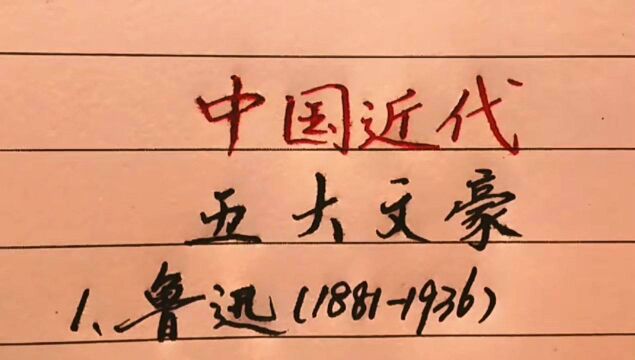 中国近代
五大文豪
1、鲁迅(1881-1936)